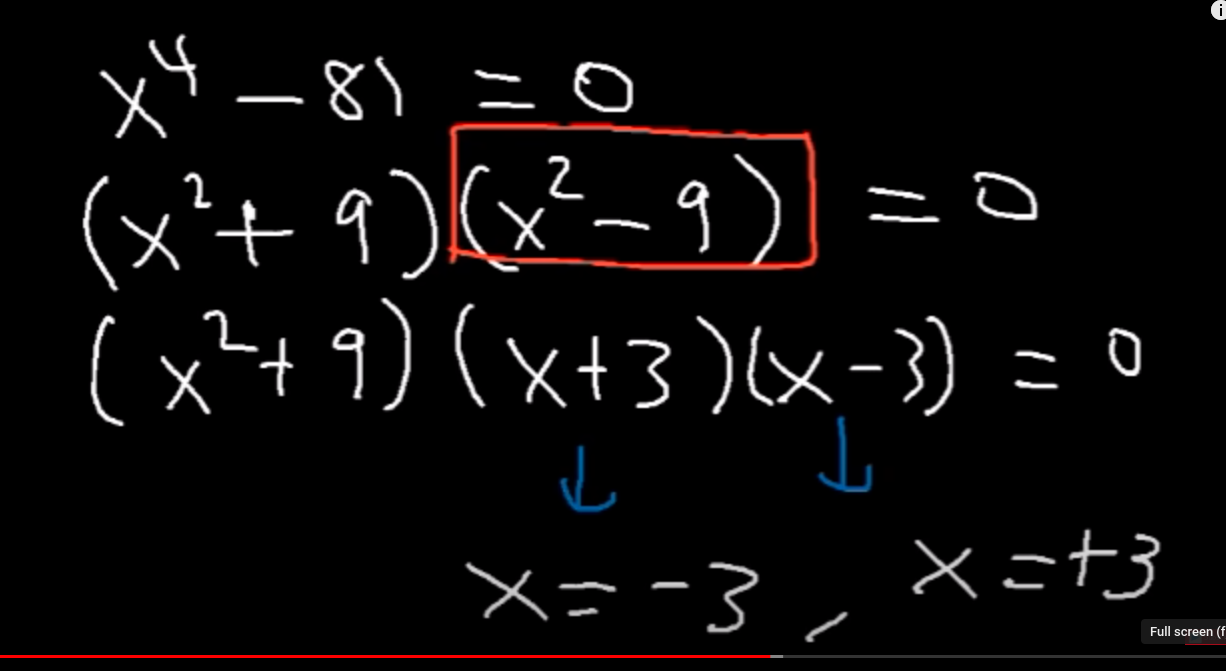 x⁴ - 81 = 0
(x² + 9)(x² - 9) = 0
(x² + 9)(x + 3)(x - 3) = 0
x = -3, x = +3
Full screen (f